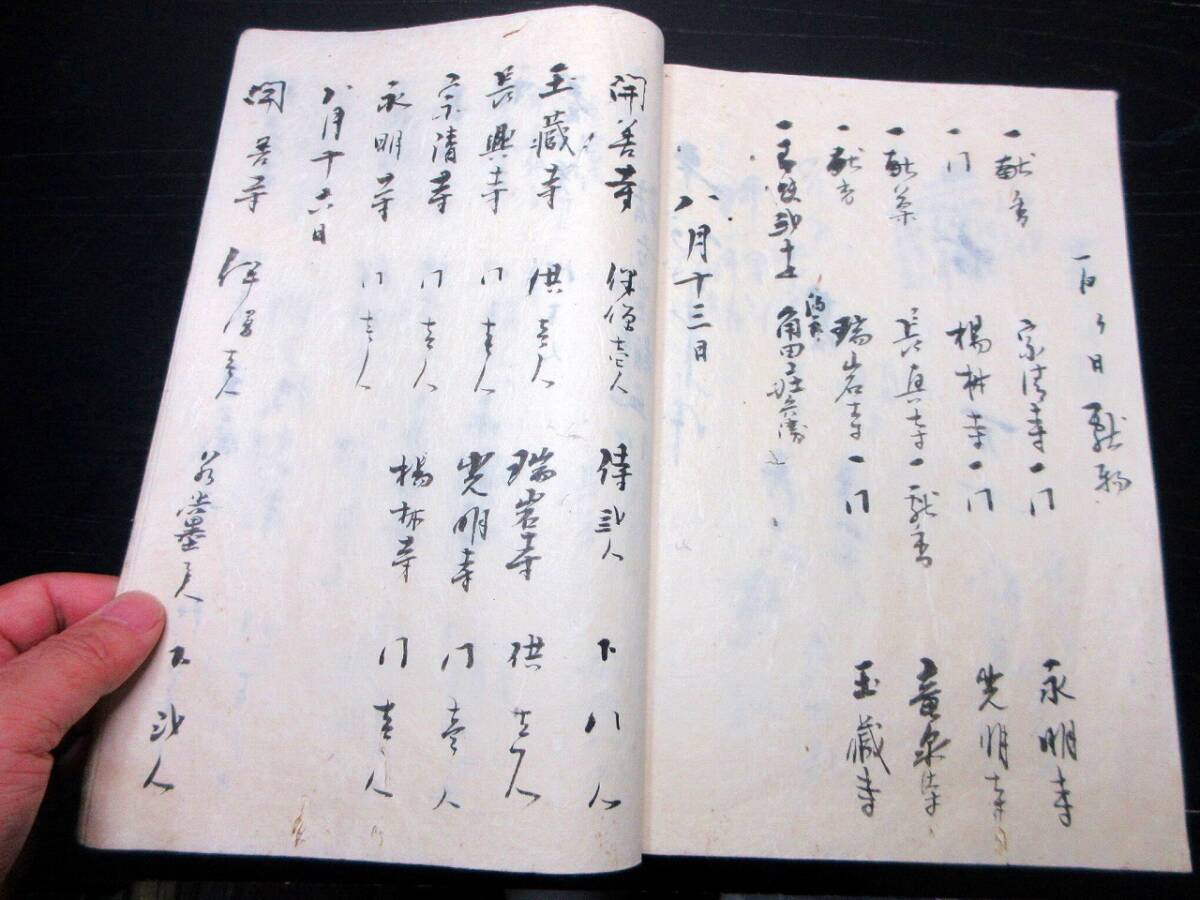 日献物
一献香 宗清寺 一门 永明寺
一门 楊林寺 一门 光明寺
一献菓 長興寺 一献香 竜泉寺
一献香 瑞岩寺 一门 玉蔵寺
角田荘兵衛
八月十三日
開善寺 伴僧壱人 侍弐人 下八人
玉蔵寺 供壱人 瑞岩寺 供壱人
長興寺 门壱人 光明寺 门壱人
宗清寺 门壱人 楊林寺 门壱人
永明寺 门壱人
八月十六日
開善寺 伴僧壱人 若党壱人 下弐人